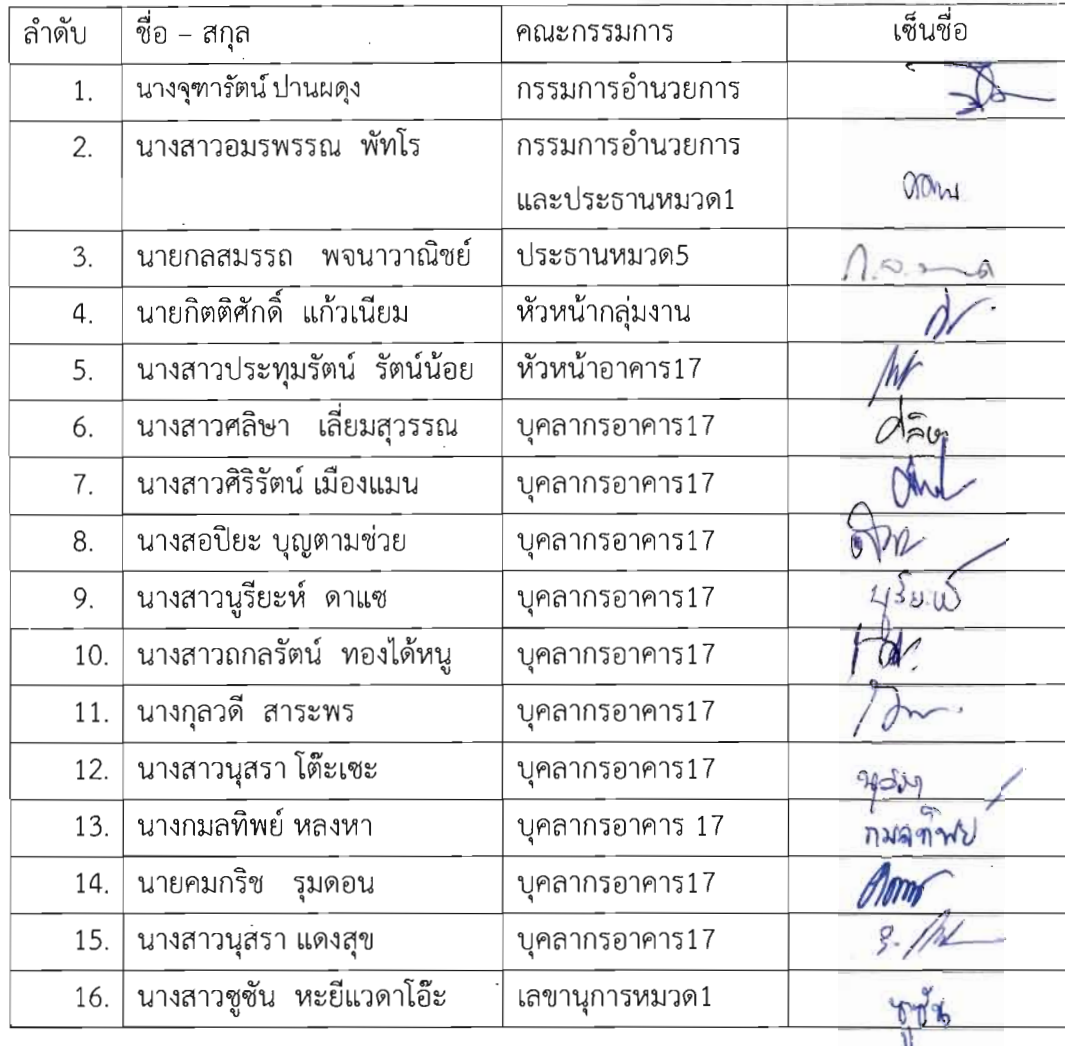 ลำดับ ชื่อ – สกุล คณะกรรมการ เซ็นชื่อ
1. นางจุฑารัตน์ ปานผดุง กรรมการอำนวยการ
2. นางสาวอมรพรรณ พัทโร กรรมการอำนวยการ
และประธานหมวด1
3. นายกลสมรรถ พจนาวาณิชย์ ประธานหมวด5
4. นายกิตติศักดิ์ แก้วเนียม หัวหน้ากลุ่มงาน
5. นางสาวประทุมรัตน์ รัตน์น้อย หัวหน้าอาคาร17
6. นางสาวศลิษา เลี่ยมสุวรรณ บุคลากรอาคาร17 ศลิษา
7. นางสาวศิริรัตน์ เมืองแมน บุคลากรอาคาร17
8. นางสอปิยะ บุญตามช่วย บุคลากรอาคาร17
9. นางสาวนูรียะห์ ดาแซ บุคลากรอาคาร17 นูรียะห์
10. นางสาวถกลรัตน์ ทองได้หนู บุคลากรอาคาร17
11. นางกุลวดี สาระพร บุคลากรอาคาร17
12. นางสาวนุสรา โต๊ะเซะ บุคลากรอาคาร17 นุสรา
13. นางกมลทิพย์ หลงหา บุคลากรอาคาร 17 กมลทิพย์
14. นายคมกริช รุมดอน บุคลากรอาคาร17
15. นางสาวนุสรา แดงสุข บุคลากรอาคาร17
16. นางสาวซูซัน หะยีแวดาโอ๊ะ เลขานุการหมวด1 ซูซัน